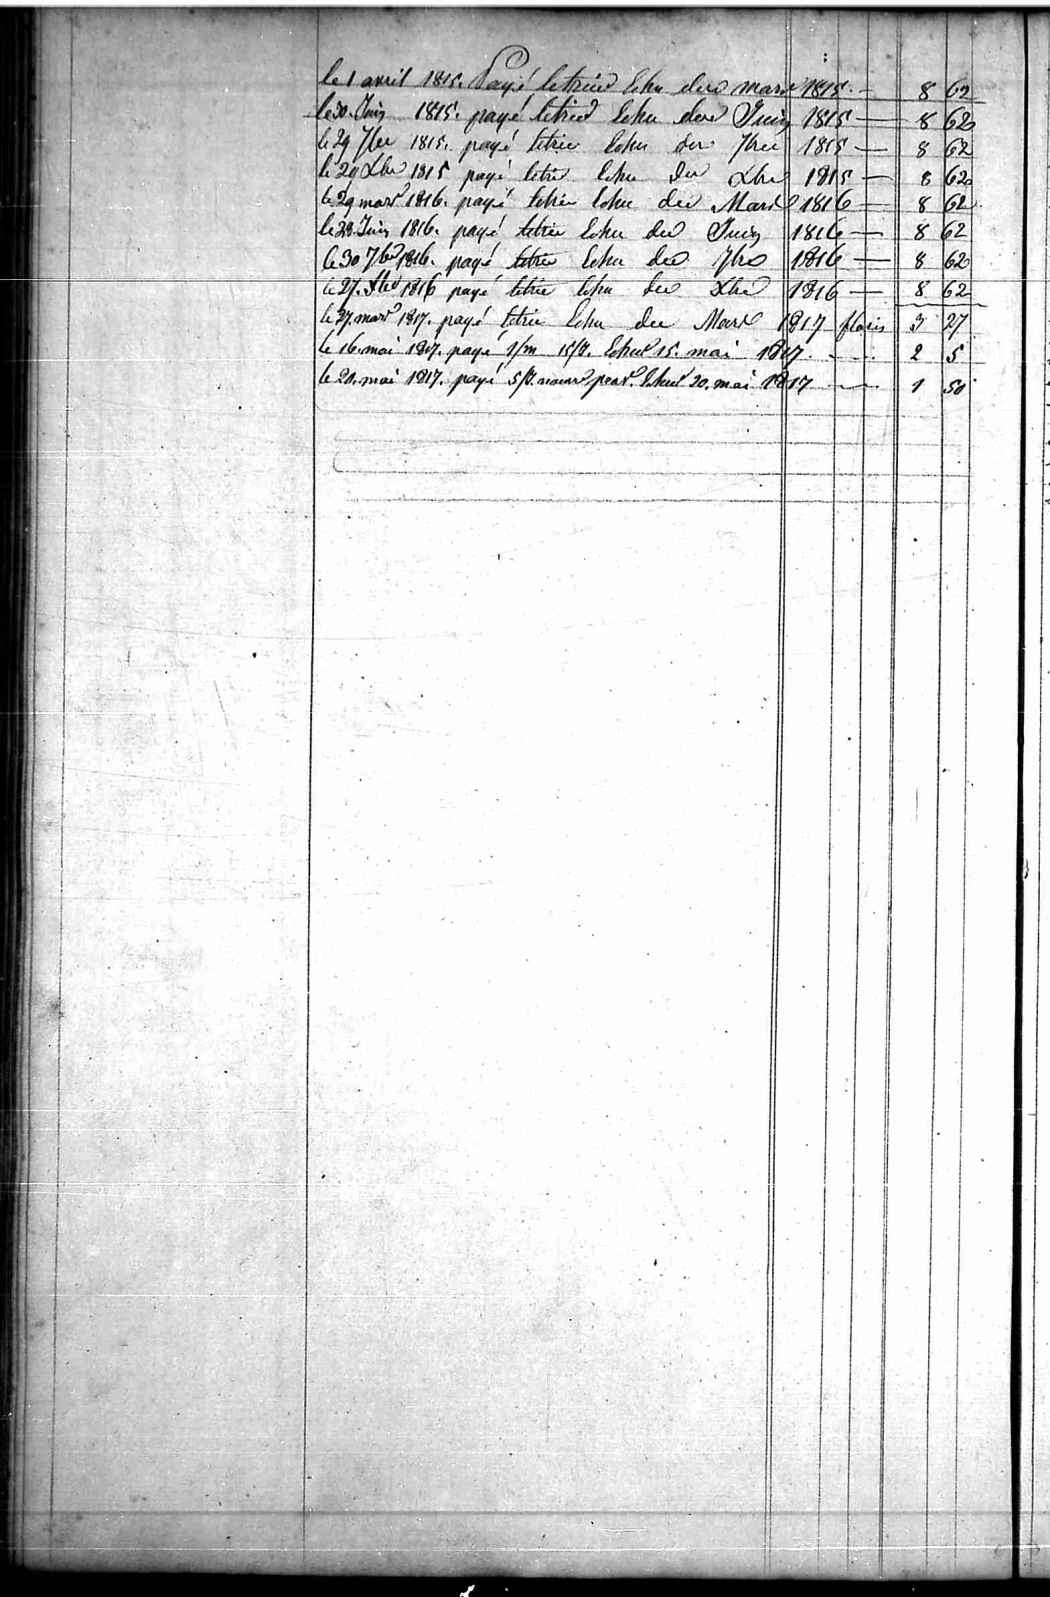 le 1 avril 1815. Payé letrin Echu du mars 1815. — 8 62
le 30. Juin 1815. payé letrin Echu du Juin 1815 — 8 62
le 29 7bre 1815. payé letrin Echu du 7bre 1815 — 8 62
le 29 Xbre 1815 payé letrin Echu du Xbre 1815 — 8 62
le 29 mars 1816. payé letrin Echu du Mars 1816 — 8 62
le 28. Juin 1816. payé letrin Echu du Juin 1816 — 8 62
le 30 7bre 1816. payé letrin Echu du 7bre 1816 — 8 62
le 27. Xbre 1816 payé letrin Echu du Xbre 1816 — 8 62
le 27. mars 1817. payé letrin Echu du Mars 1817 florins 3 27
le 16. mai 1817. payé 1/m 15/J. Echus 15. mai 1817. — 2 5
le 20. mai 1817. payé 5/J. Echus 20. mai 1817 — 1 50